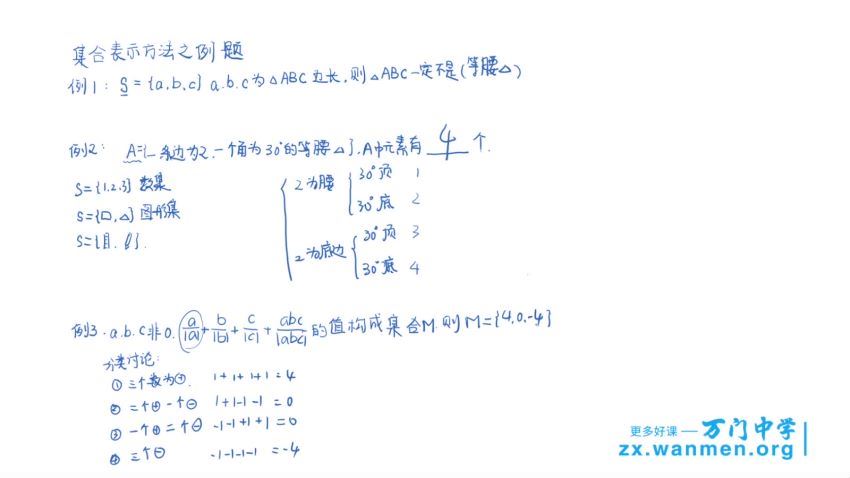 集合表示方法之例题
例1: S={a.b.c} a.b.c为△ABC边长,则△ABC一定不是(等腰△)
例2: A={一条边为2.一个角为30°的等腰△}.A中元素有 4 个.
S={1.2.3} 数集
S={□,△} 图形集
S={目. }.
2为腰 30°顶 1
30°底 2
2为底边 30°顶 3
30°底 4
例3.a.b.c非0. a/|a|+b/|b|+c/|c|+abc/|abc| 的值构成集合M.则M={4,0,-4}
分类讨论:
① 三个数为⊕. 1+1+1+1=4
② 二个⊕一个⊖ 1+1-1-1=0
③ 一个⊕二个⊖ -1-1+1+1=0
④ 三个⊖ -1-1-1-1=-4
更多好课 — 万门中学
zx.wanmen.org